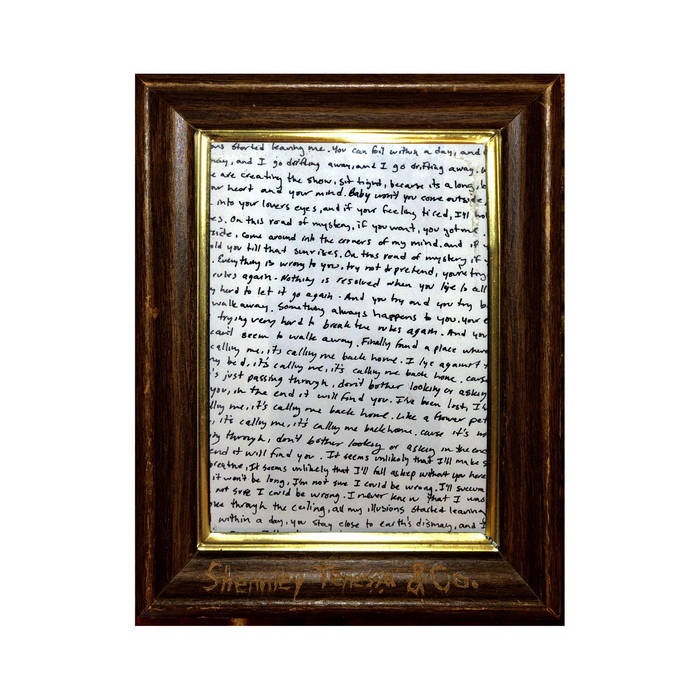 ons started leaving me. You can fail within a day, and
may, and I go drifting away, and I go drifting away,
e are creating the show, sit tight, because its a long,
ur heart and your mind. Baby won't you come outside
into your lovers eyes, and if your feeling tired, I'll
es. On this road of mystery, if you want, you got me
side, come around into the corners of my mind. and if
old you till that sunrises. On this road of mystery if
. Everything is wrong to you, try not to pretend, you're try
rules again. Nothing is resolved when you lye to all
y hard to let it go again. And you try and you try
walk away. Something always happens to you. your
trying very hard to break the rules again. And you
can't seem to walk away. Finally found a place where
calling me, it's calling me back home. I lye against
my bed, it's calling me, it's calling me back home. cause
's just passing through, don't bother looking or asking
you, in the end it will find you. I've been lost, I
lling me, it's calling me back home. Like a flower pet
, it's calling me, it's calling me back home. cause it's
ing through, don't bother looking or asking in the end
end it will find you. It seems unlikely that I'll make
creative, It seems unlikely that I'll fall asleep without you here
it won't be long, I'm not sure I could be wrong. I'll succum
not sure I could be wrong. I never knew that I was
oke through the ceiling, all my illusions started leaving
within a day, you stay close to earth's dismay, and I
Shenney Teressa & Co.